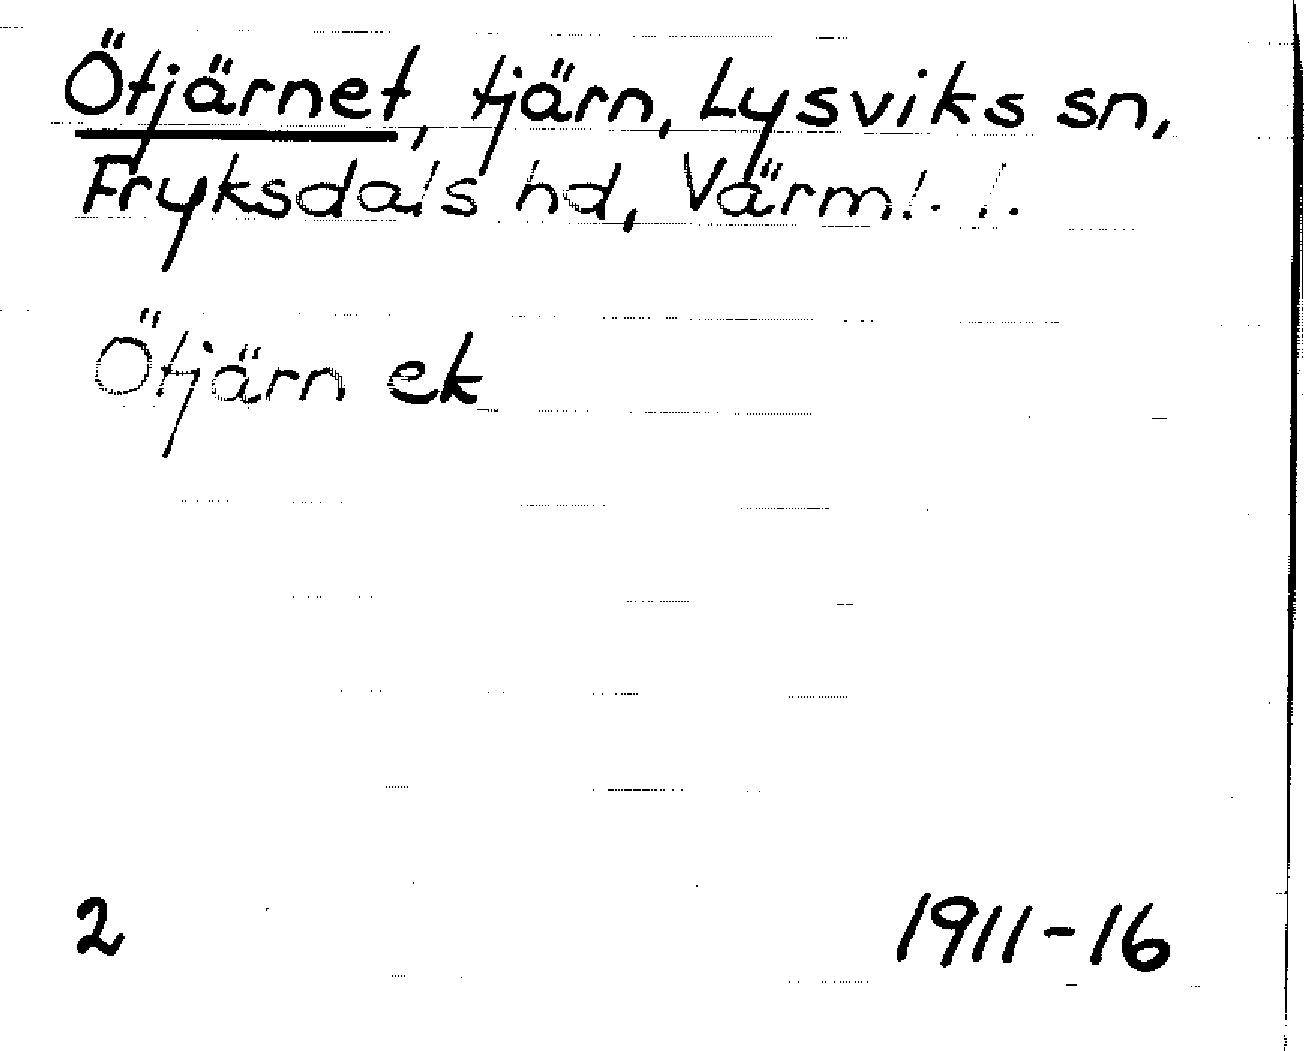 Ötjärnet, tjärn, Lysviks sn,
Fryksdals hd, Värml. l.
Ötjärn ek
2
1911-16